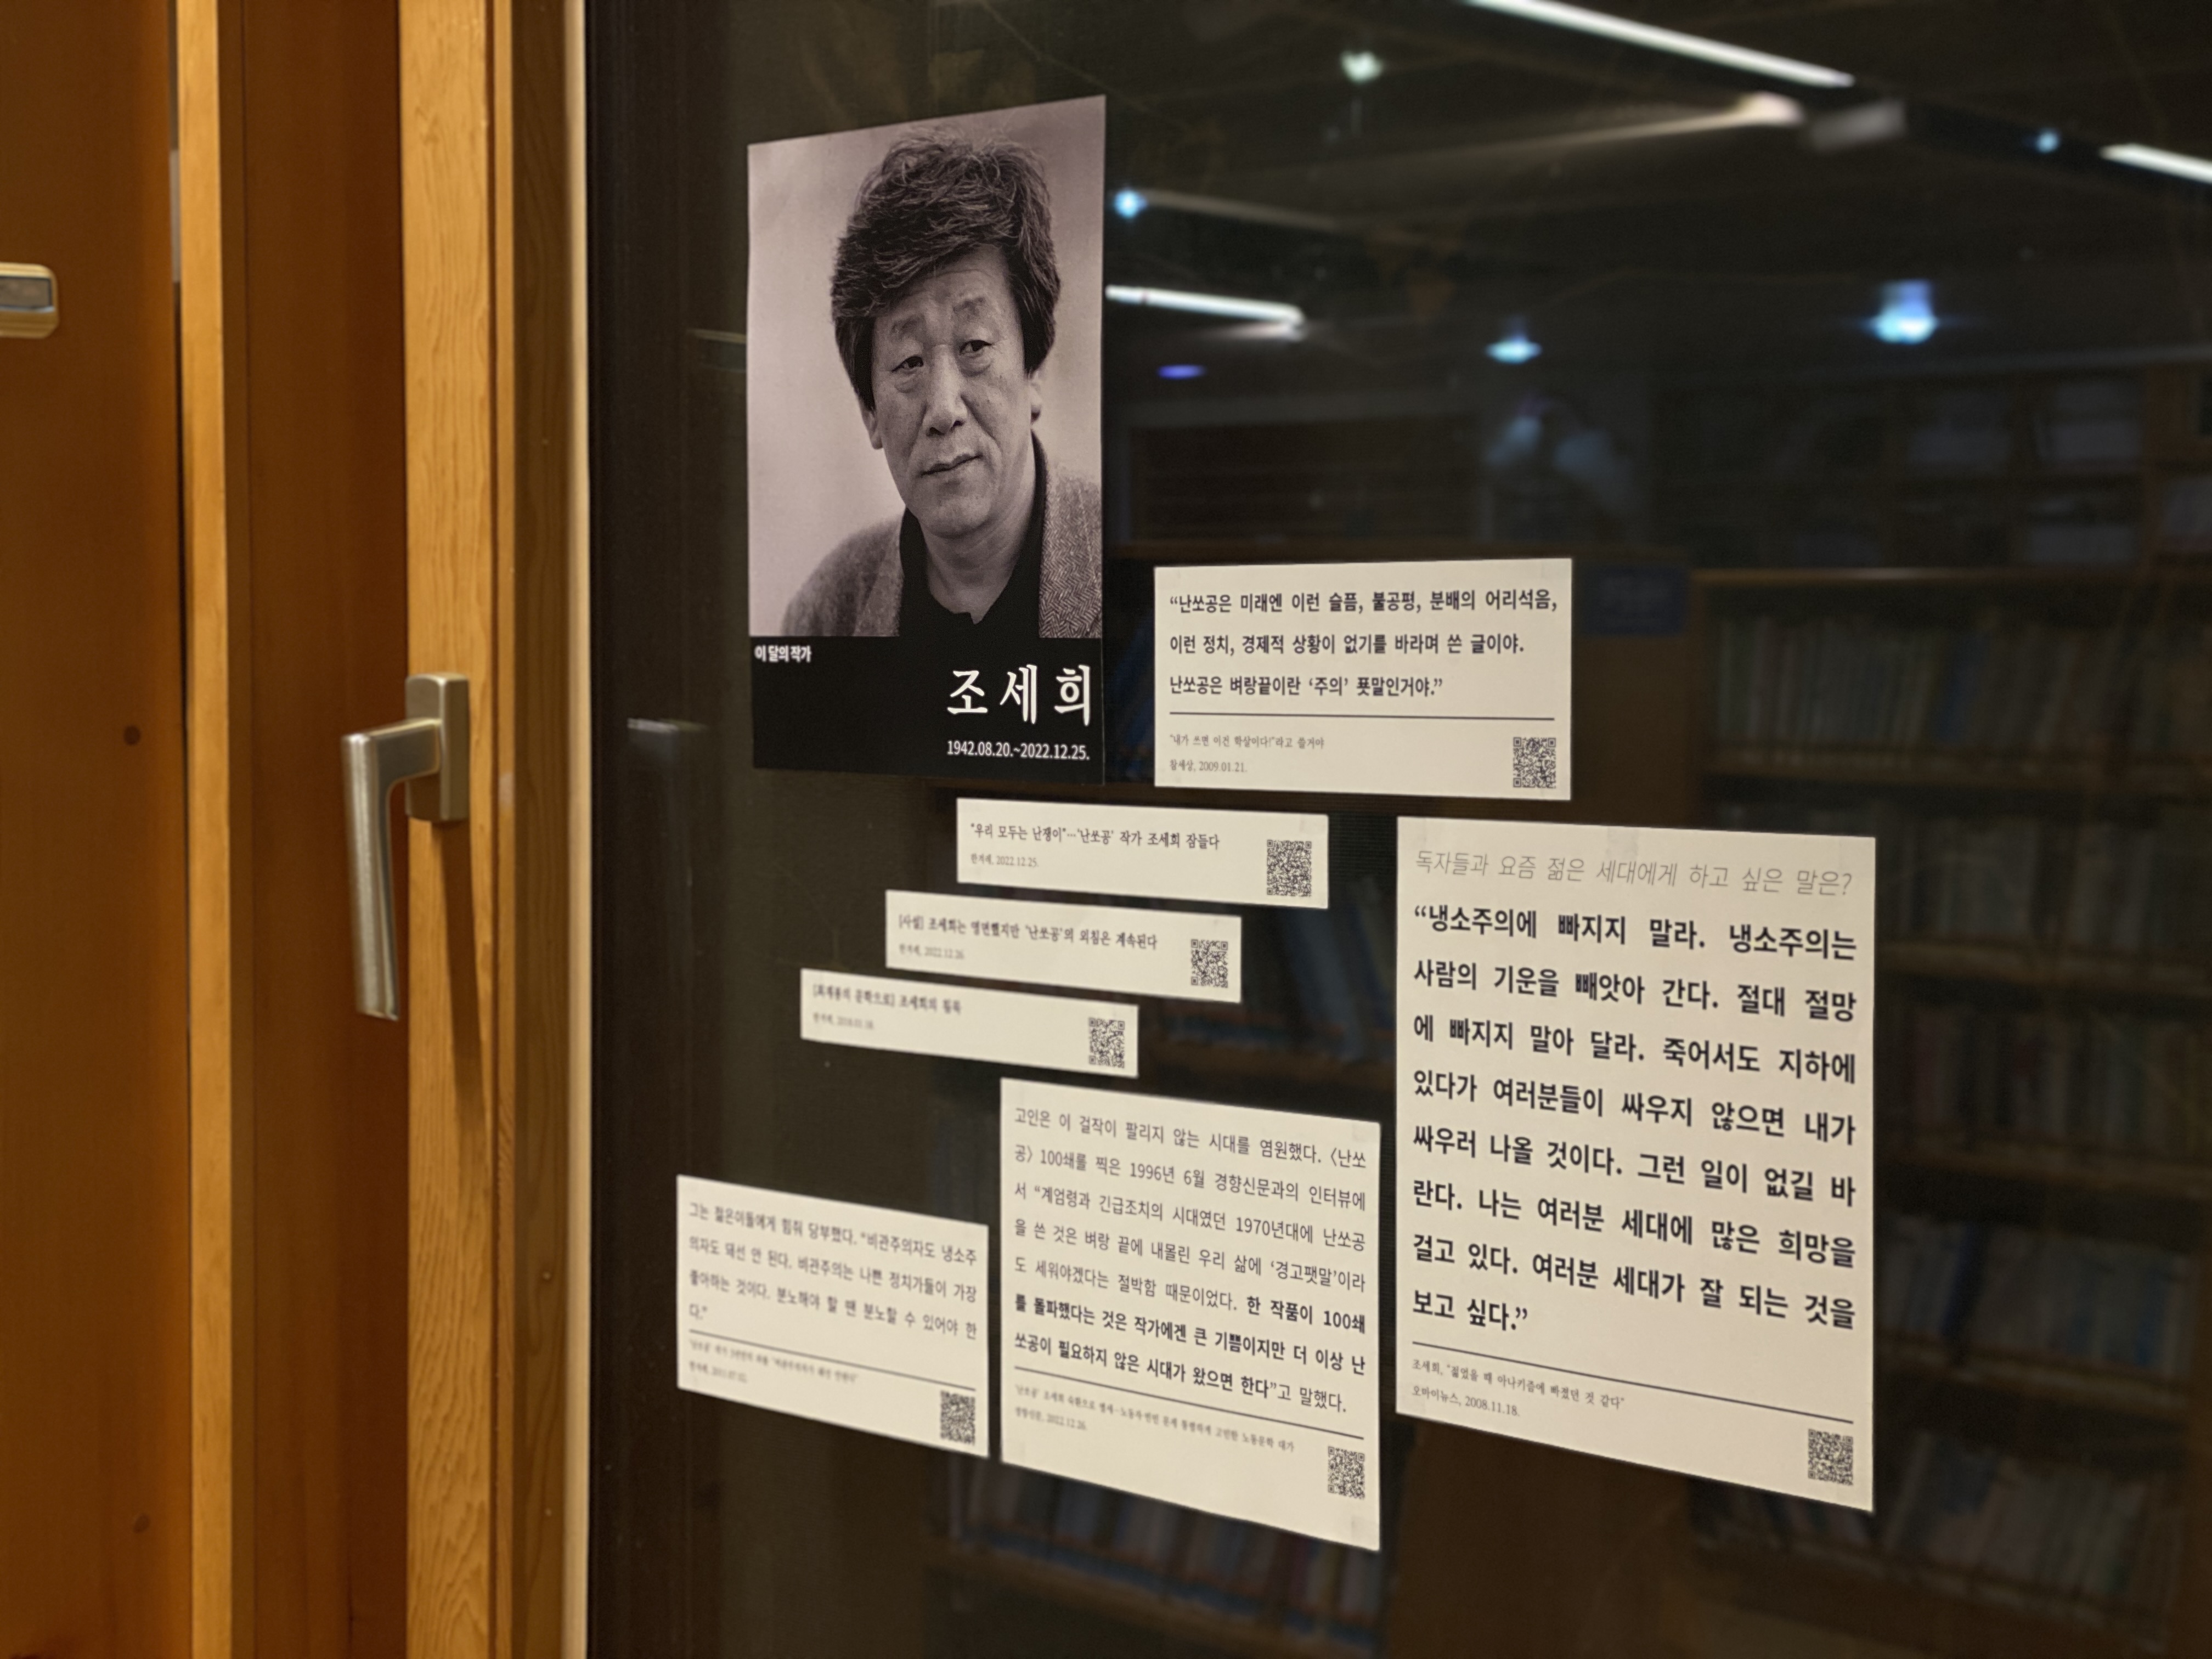 이 달의 작가
조세희
1942.08.20.~2022.12.25.
“난쏘공은 미래엔 이런 슬픔, 불공평, 분배의 어리석음,
이런 정치, 경제적 상황이 없기를 바라며 쓴 글이야.
난쏘공은 벼랑끝이란 ‘주의’ 푯말인거야.”
"내가 쓰면 이건 학살이다!"라고 쓸거야
참세상, 2009.01.21.
"우리 모두는 난쟁이"…'난쏘공' 작가 조세희 잠들다
한겨레, 2022.12.25.
[사설] 조세희는 영면했지만 '난쏘공'의 외침은 계속된다
한겨레, 2022.12.26.
조세희의 침묵
한겨레,
독자들과 요즘 젊은 세대에게 하고 싶은 말은?
“냉소주의에 빠지지 말라. 냉소주의는
사람의 기운을 빼앗아 간다. 절대 절망
에 빠지지 말아 달라. 죽어서도 지하에
있다가 여러분들이 싸우지 않으면 내가
싸우러 나올 것이다. 그런 일이 없길 바
란다. 나는 여러분 세대에 많은 희망을
걸고 있다. 여러분 세대가 잘 되는 것을
보고 싶다.”
조세희, "젊었을 때 아나키즘에 빠졌던 것 같다"
오마이뉴스, 2008.11.18.
고인은 이 걸작이 팔리지 않는 시대를 염원했다. 〈난쏘
공〉 100쇄를 찍은 1996년 6월 경향신문과의 인터뷰에
서 “계엄령과 긴급조치의 시대였던 1970년대에 난쏘공
을 쓴 것은 벼랑 끝에 내몰린 우리 삶에 ‘경고팻말’이라
도 세워야겠다는 절박함 때문이었다. 한 작품이 100쇄
를 돌파했다는 것은 작가에겐 큰 기쁨이지만 더 이상 난
쏘공이 필요하지 않은 시대가 왔으면 한다”고 말했다.
'난쏘공' 조세희 숙환으로 별세…노동자·빈민 문제 통렬하게 고민한 노동문학 대가
경향신문, 2022.12.26.
그는 젊은이들에게 힘줘 당부했다. “비관주의자도 냉소주
의자도 돼선 안 된다. 비관주의는 나쁜 정치가들이 가장
좋아하는 것이다. 분노해야 할 땐 분노할 수 있어야 한
다.”
한겨레,